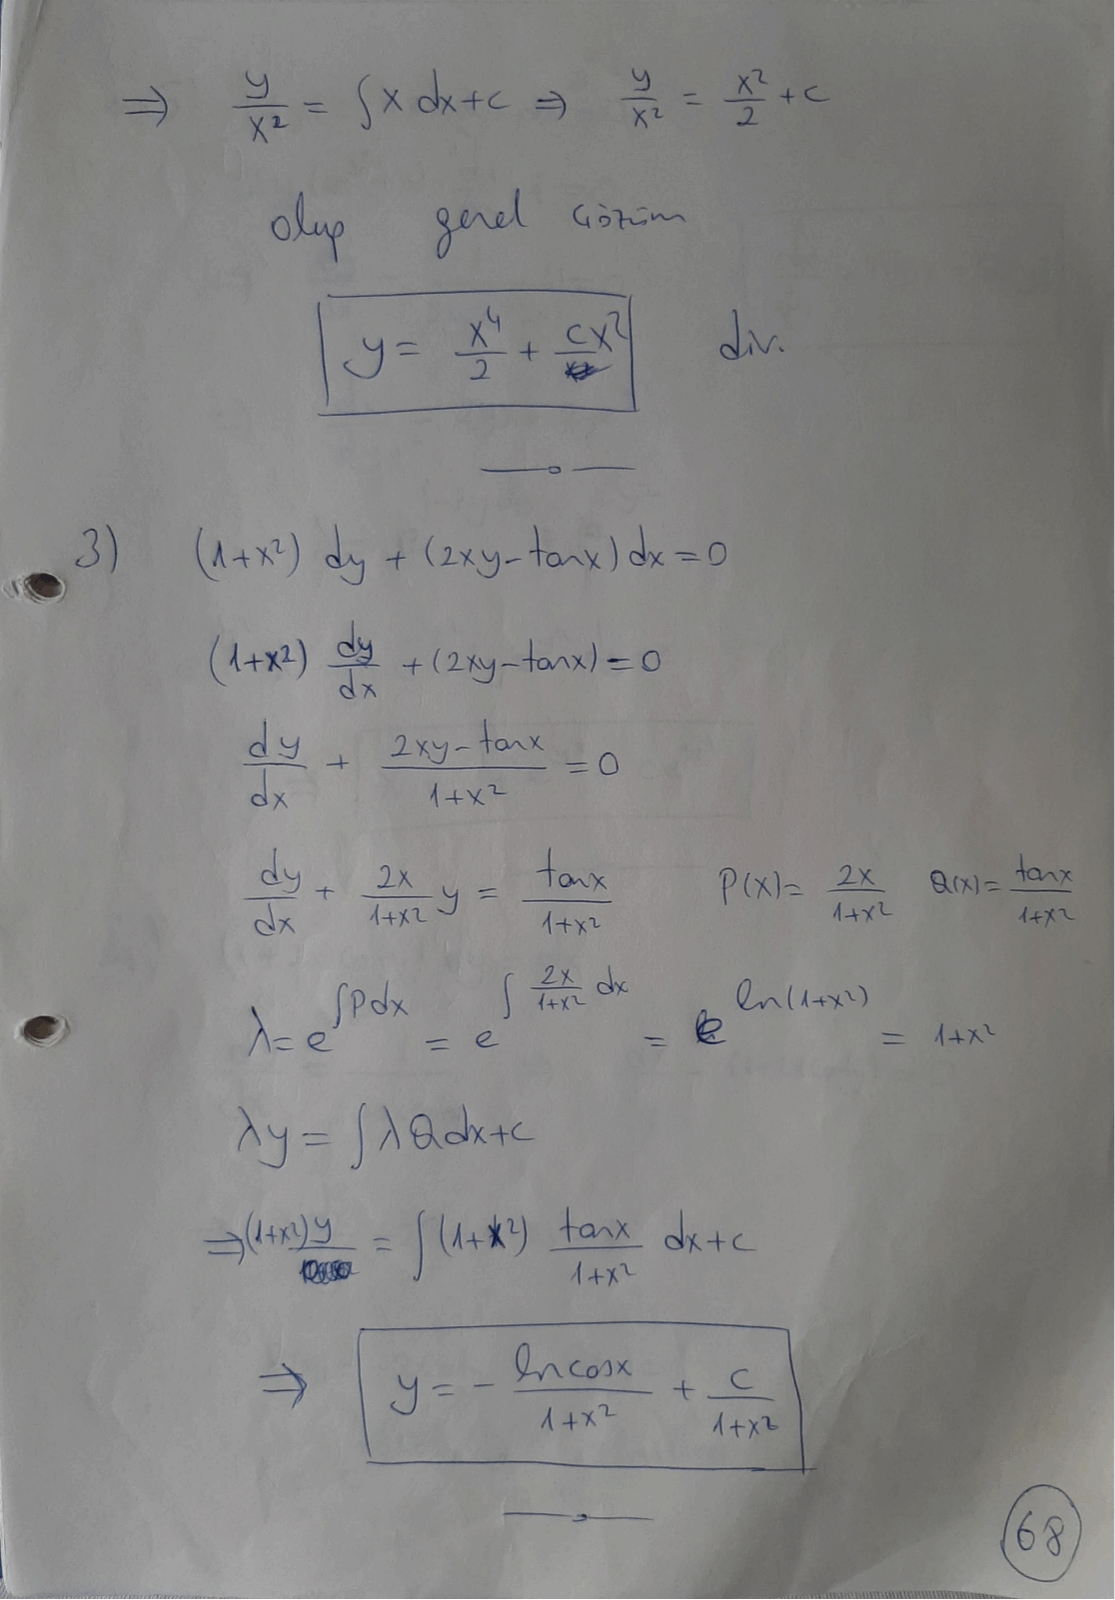 ⇒ y/x² = ∫x dx+c ⇒ y/x² = x²/2 + c
olup genel çözüm
y = x⁴/2 + cx² dir.
3) (1+x²) dy + (2xy-tanx) dx = 0
(1+x²) dy/dx + (2xy-tanx) = 0
dy/dx + (2xy-tanx)/(1+x²) = 0
dy/dx + 2x/(1+x²) y = tanx/(1+x²) P(x) = 2x/(1+x²) Q(x) = tanx/(1+x²)
λ = e^(∫Pdx) = e^(∫ 2x/(1+x²) dx) = e^(ln(1+x²)) = 1+x²
λy = ∫λQdx+c
⇒ (1+x²)y = ∫(1+x²) tanx/(1+x²) dx+c
⇒ y = - lncosx/(1+x²) + c/(1+x²)
68